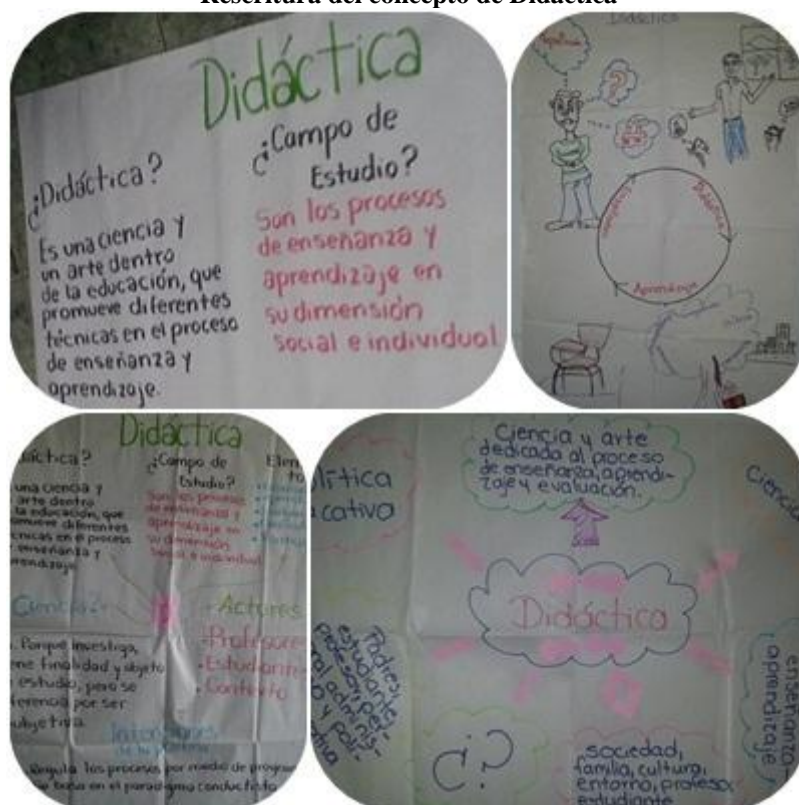 Reescritura del concepto de Didáctica
Didáctica
¿Didáctica?
Es una ciencia y
un arte dentro
de la educación, que
promueve diferentes
técnicas en el proceso
de enseñanza y
aprendizaje.
¿Campo de
Estudio?
Son los procesos
de enseñanza y
aprendizaje en
su dimensión
social e individual
Didáctica
Didáctica
Aprendizaje
Didáctica
áctica?
una ciencia y
arte dentro
la educación, que
omueve diferentes
cnicas en el proceso
enseñanza y
rendizaje
¿Campo de
Estudio?
Son los procesos
de enseñanza y
aprendizaje en
su dimensión
social e individual
Elen
to
Ciencia?
Porque investiga,
ne finalidad y objeto
estudio, pero se
ferencia por ser
ubjetiva.
Actores
Profesore
Estudian
Contexto
Regula los procesos por medio de progra
basa en el paradigma conductista
lítica
cativa
Ciencia y arte
dedicada al proceso
de enseñanza, aprendi-
zaje y evaluación.
Ciencia
Didáctica
Padres,
estudiante,
profesor, per-
adminis-
y polí-
¿?
sociedad,
familia, cultura,
entorno, profesor,
estudiante
enseñanza-
aprendizaje